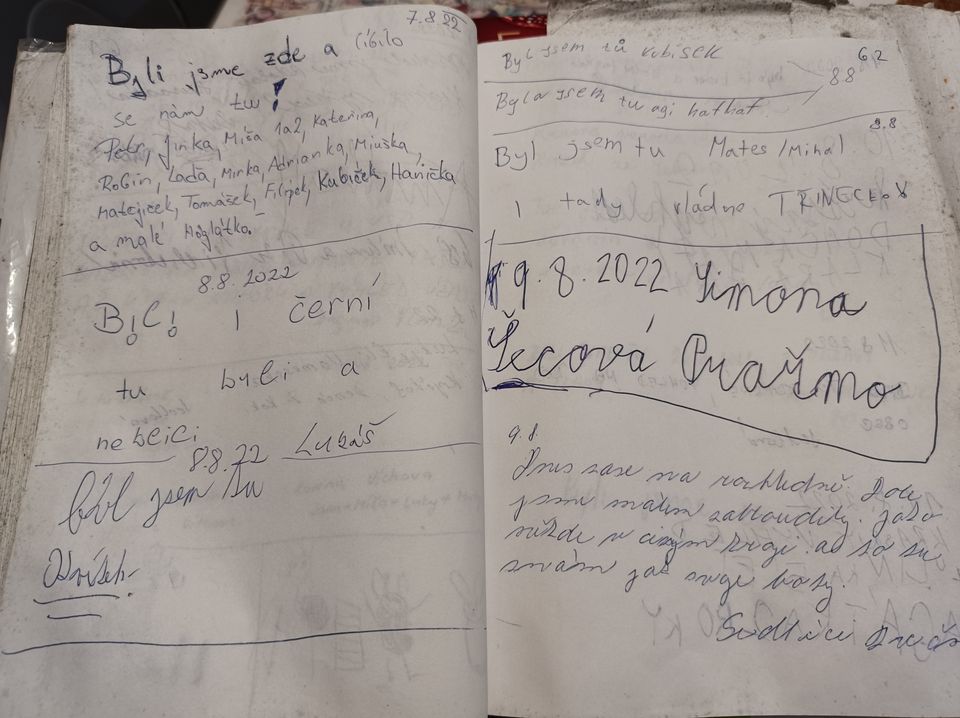 7.8.22
Byli jsme zde a líbilo
se nám tu!
Petr, Jirka, Míša 1a2, Kateřina,
Robin, Laďa, Mirka, Adrianka, Miuška,
Matejíček, Tomášek, Filípek, Kubíček, Hanička
a malé Móglátko.
8.8.2022
B!C! i černí
tu byli a
neblcici
8.8.22 Lukáš
był jsem tu
Byl jsem tů Kubisek 6.2
8.8
Byla jsem tu agi hafhaf
8.8
Byl jsem tu Mates/Mihal
i tady vládne TŘINEC
9.8.2022 Simona
Šecová Pražmo
9.8.
Dnes zase na rozhledně. Zde
jsme málem zabloudily. jako
v cizým kraji. a to tu
znám jak svoje boty.
Sedlice